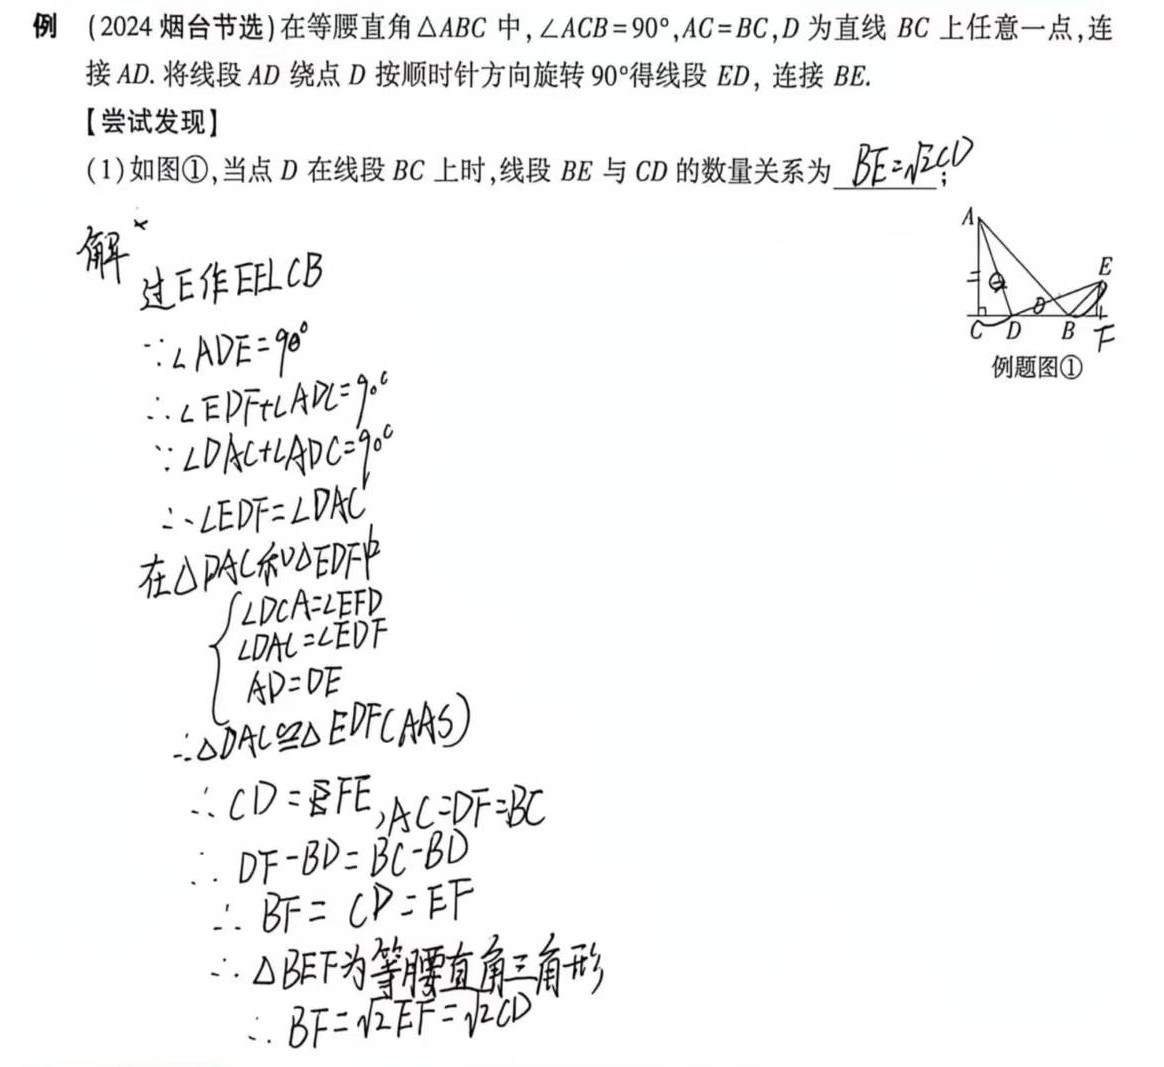 例 (2024 烟台节选)在等腰直角△ABC 中,∠ACB=90°,AC=BC,D 为直线 BC 上任意一点,连
接 AD. 将线段 AD 绕点 D 按顺时针方向旋转 90°得线段 ED, 连接 BE.
【尝试发现】
(1)如图①,当点 D 在线段 BC 上时,线段 BE 与 CD 的数量关系为 BE=√2CD;
解
过E作EF⊥CB
∵∠ADE=90°
∴∠EDF+∠ADC=90°
∵∠DAC+∠ADC=90°
∴∠EDF=∠DAC
在△DAC和△EDF中
∠DCA=∠EFD
∠DAC=∠EDF
AD=DE
∴△DAC≌△EDF(AAS)
∴CD=FE,AC=DF=BC
∴DF-BD=BC-BD
∴BF=CD=EF
∴△BEF为等腰直角三角形
∴BF=√2EF=√2CD
A
E
C D B F
例题图①